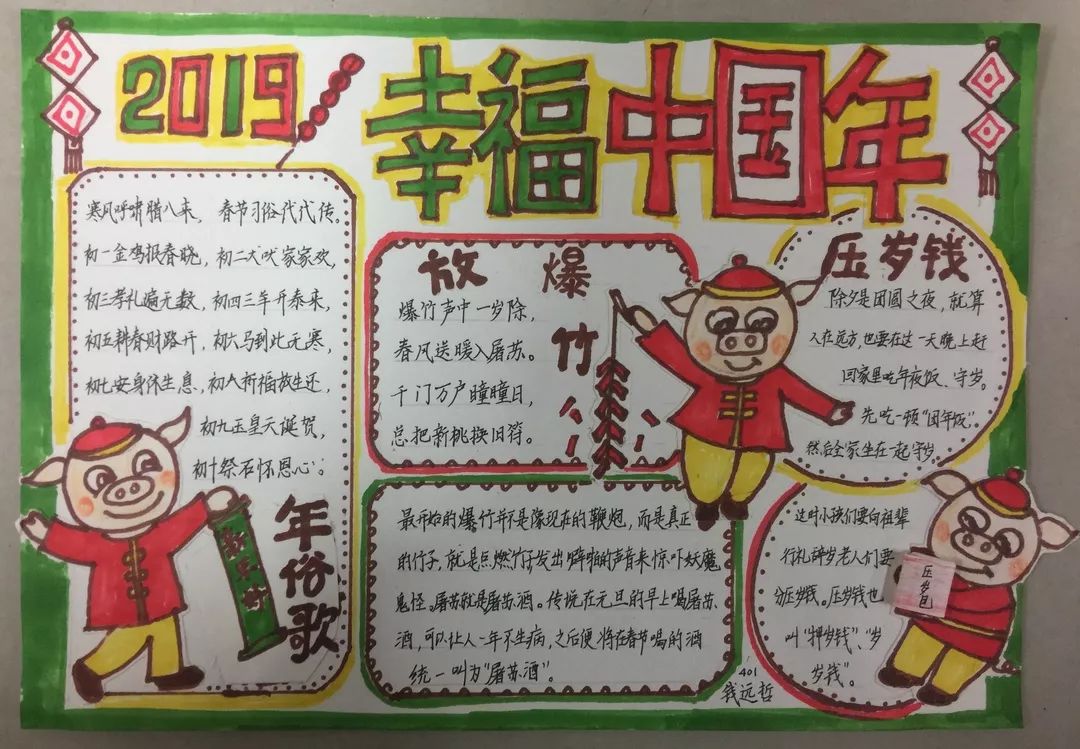 2019
幸福中国年
寒风呼啸腊八来，春节习俗代代传。
初一金鸡报春晓，初二犬吠家家欢，
初三孝礼遍无数，初四三羊开泰来，
初五耕春财路开，初六马到比无寒，
初七安身休生息，初八祈福放生还，
初九玉皇天诞贺，
初十祭石怀恩心；
年俗歌
放爆竹
爆竹声中一岁除，
春风送暖入屠苏。
千门万户曈曈日，
总把新桃换旧符。
最开始的爆竹并不是像现在的鞭炮，而是真正
的竹子，就是点燃竹子发出噼啪的声音来惊吓妖魔
鬼怪。屠苏就是屠苏酒。传说在元旦的早上喝屠苏
酒，可以让人一年不生病，之后便将在春节喝的酒
统一叫为“屠苏酒”。
压岁钱
除夕是团圆之夜，就算
人在远方，也要在这一天晚上赶
回家里吃年夜饭、守岁。
先吃一顿“团年饭”。
然后全家坐在一起守岁。
这时小孩们要向祖辈
行礼辞岁老人们要
分压岁钱。压岁钱也
叫“押岁钱”、“岁
岁钱”。
压岁包
新年好
401
钱远哲